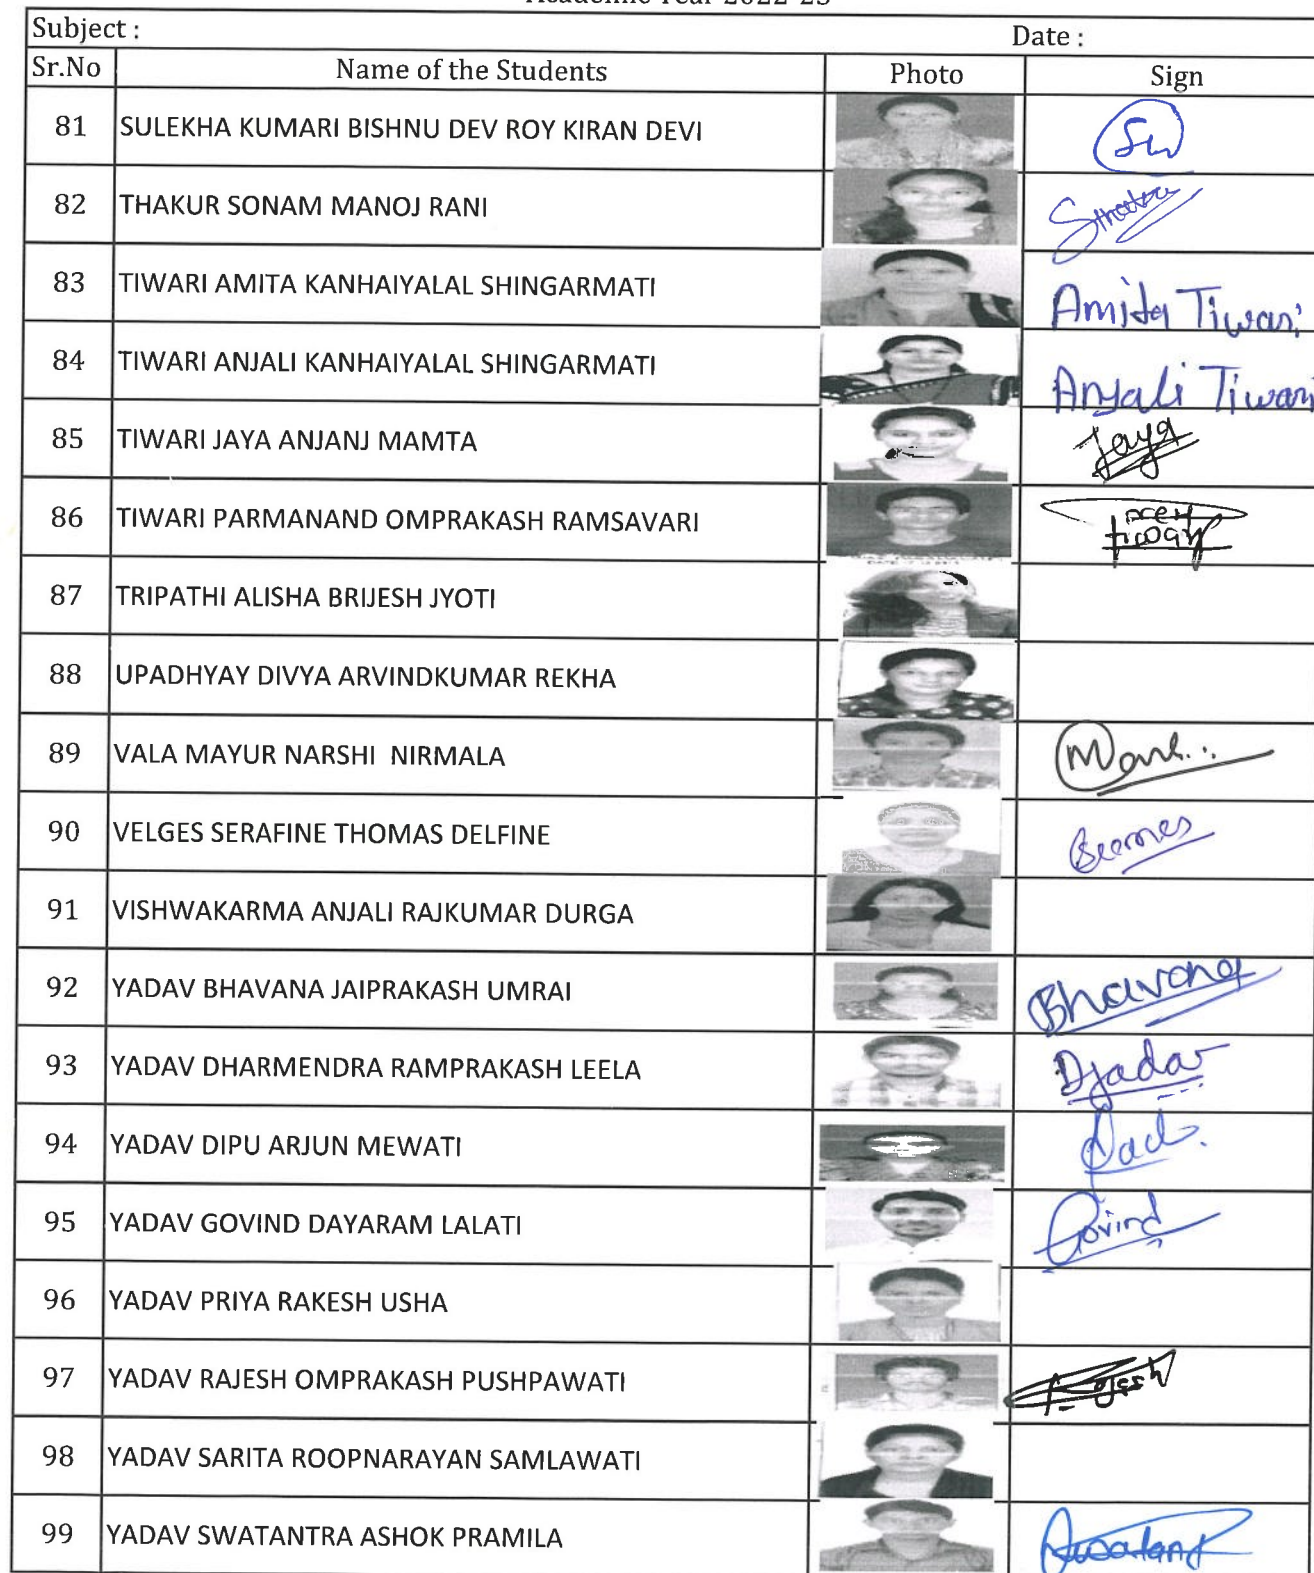 Academic Year 2022-23
Subject : Date :
Sr.No Name of the Students Photo Sign
81 SULEKHA KUMARI BISHNU DEV ROY KIRAN DEVI
82 THAKUR SONAM MANOJ RANI
83 TIWARI AMITA KANHAIYALAL SHINGARMATI Amita Tiwari
84 TIWARI ANJALI KANHAIYALAL SHINGARMATI Anjali Tiwari
85 TIWARI JAYA ANJANJ MAMTA Jaya
86 TIWARI PARMANAND OMPRAKASH RAMSAVARI
87 TRIPATHI ALISHA BRIJESH JYOTI
88 UPADHYAY DIVYA ARVINDKUMAR REKHA
89 VALA MAYUR NARSHI NIRMALA
90 VELGES SERAFINE THOMAS DELFINE
91 VISHWAKARMA ANJALI RAJKUMAR DURGA
92 YADAV BHAVANA JAIPRAKASH UMRAI Bhavana
93 YADAV DHARMENDRA RAMPRAKASH LEELA Dyadav
94 YADAV DIPU ARJUN MEWATI
95 YADAV GOVIND DAYARAM LALATI Govind
96 YADAV PRIYA RAKESH USHA
97 YADAV RAJESH OMPRAKASH PUSHPAWATI Rajesh
98 YADAV SARITA ROOPNARAYAN SAMLAWATI
99 YADAV SWATANTRA ASHOK PRAMILA